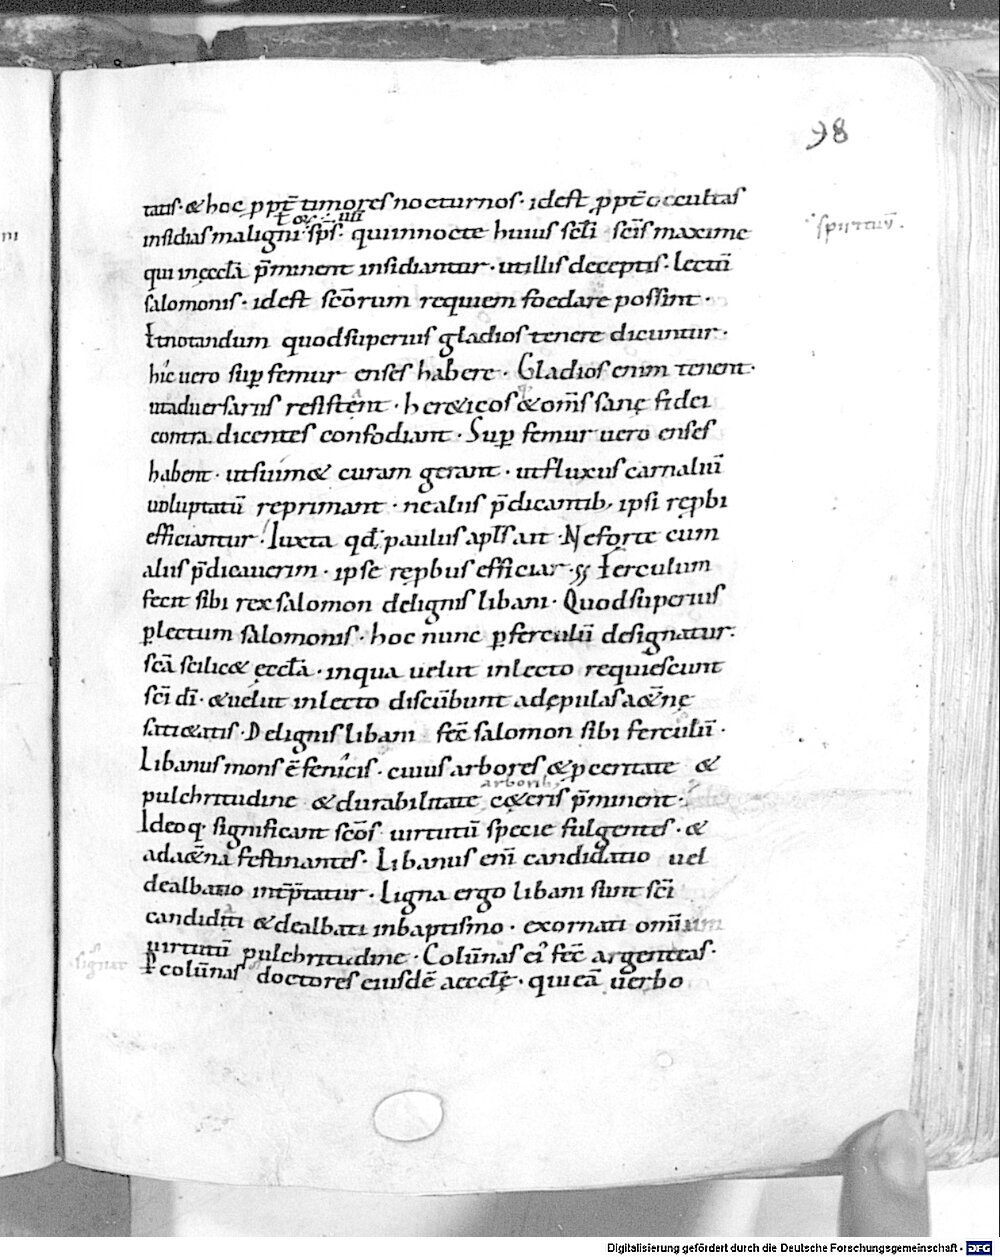 98
tatis · & hoc ꝓpt̄ timores nocturnos · idest ꝓpt̄ occultas
insidias maligni · sp̄s · qui innocte huius sc̄li sc̄is maxime
sp̄irituū .
qui inęccl̄a p̄minent insidiantur · ut illis deceptis · lectū
salomonis · idest sc̄orum requiem foedare possint ·
Et notandum quod superius gladios tenere dicuntur ·
hic uero suꝑ femur enses habere · Gladios enim tenent ·
ut aduersariis resistent · her&icos & om̄s sanę fidei
contra dicentes confodiant · Suꝑ femur uero enses
habent · ut suim& curam gerant · ut fluxus carnaliū
uoluptatū reprimant · ne aliis p̄dicantib; ipsi rep̱bi
efficiantur · Iuxta qđ paulus apl̄s ait · Ne forte cum
aliis p̄dicauerim · ipse rep̱bus efficiar · Ferculum
fecit sibi rex salomon delignis libani · Quod superius
ꝑlectum salomonis · hoc nunc ꝑferculū designatur ·
sc̄a scilic& ęccl̄a · inqua uelut inlecto requiescunt
sc̄i dī · & uelut inlecto discūbunt adępulas a&̄nę
soci&atis · Delignis libani fec̄ salomon sibi ferculū ·
Libanus mons ē fenicis · cuius arbores & ꝓceritate &
arborib;
pulchritudine & durabilitate c&eris p̄minent ·
Ideoq · significant sc̄os uirtutū specie fulgentes · &
ada&̄na festinantes · Libanus enī candidatio uel
dealbatio int̄p̄tatur · Ligna ergo libani sunt sc̄i
candidati & dealbati inbaptismo · exornati omnium
uirtutū pulchritudine · Colūnas ei fec̄ argenteas ·
signat
P colūnas doctores eiusdē aecclę · qui eā uerbo
Digitalisierung gefördert durch die Deutsche Forschungsgemeinschaft - DFG